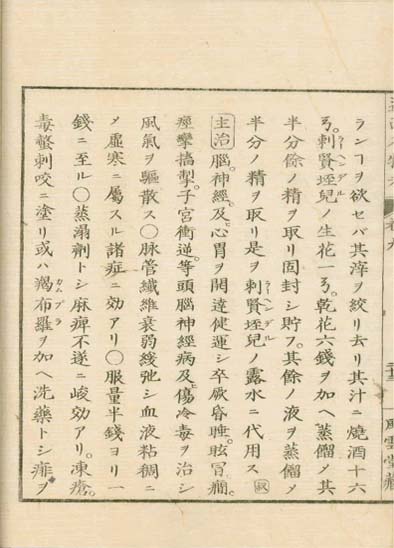 ランヿヲ欲セバ其滓ヲ絞リ去リ其汁ニ燒酒十六
刺賢垤兒ノ生花一乾花六錢ヲ加ヘ蒸餾メ其
半分餘ノ精ヲ取リ固封シ貯フ其餘ノ液ヲ蒸餾メ
半分ノ精ヲ取リ是ヲ刺賢垤兒ノ露水ニ代用ス
主治 腦。神經。及心胃ヲ開達健運シ卒厥昏睡。眩冒癇。
痙攣搐掣。子宮衝逆。等頭腦神經病及傷冷毒ヲ治シ
風氣ヲ驅散ス〇脉管纖維衰弱緩弛シ血液粘稠ニ
メ虛寒ニ屬スル諸症ニ効アリ〇服量半錢ヨリ一
錢ニ至ル〇蒸溻劑トシ麻痺不遂ニ峻効アリ。凍瘡。
毒螫刺咬ニ塗リ或ハ羯布羅ヲ加ヘ洗藥トシ痱ヲ